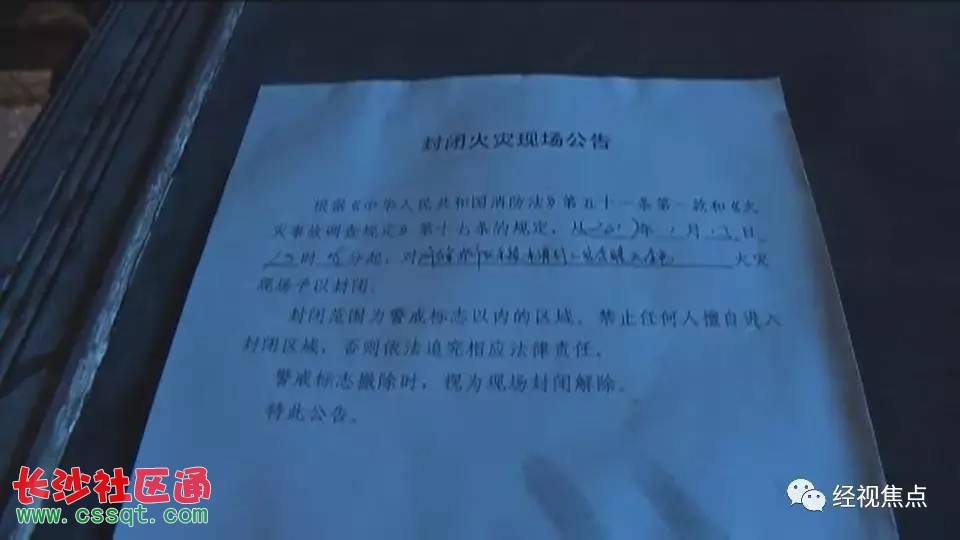 封闭火灾现场公告
根据《中华人民共和国消防法》第五十一条第一款和《火
灾事故调查规定》第十七条的规定，从2017年1月13日
时 分起，对 火灾
现场予以封闭。
封闭范围为警戒标志以内的区域。禁止任何人擅自进入
封闭区域，否则依法追究相应法律责任。
警戒标志撤除时，视为现场封闭解除。
特此公告。
长沙社区通
www.cssqt.com
经视焦点